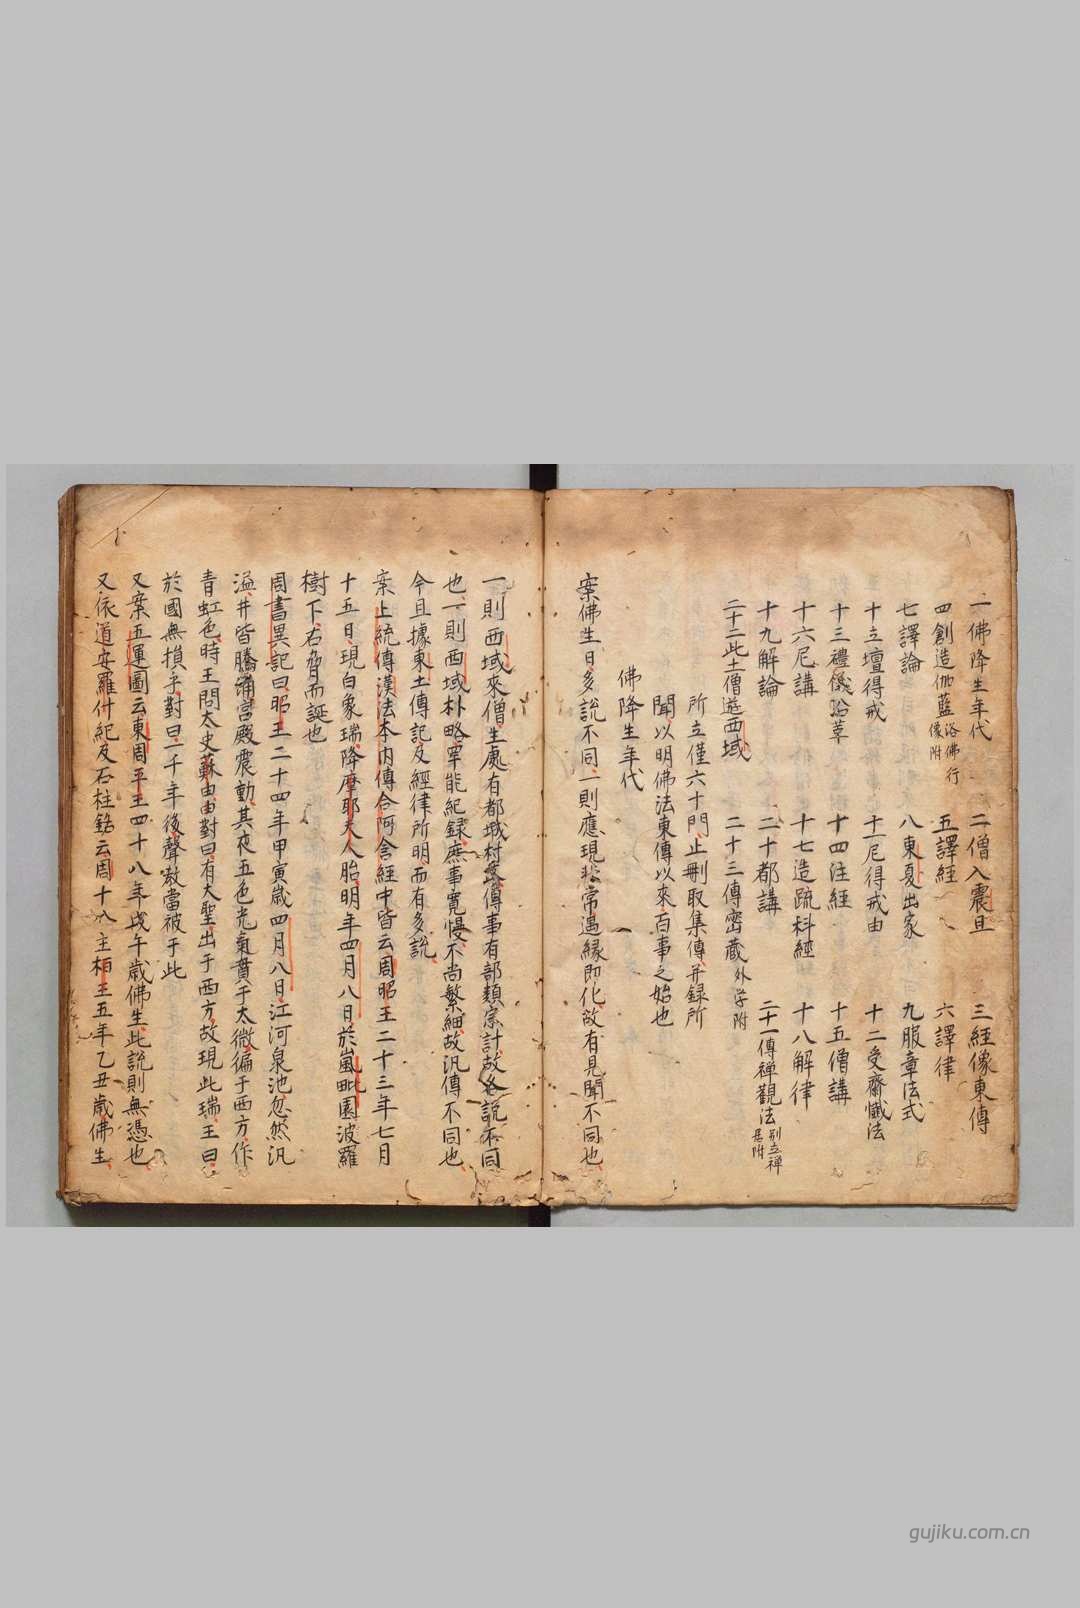 一佛降生年代 二僧入震旦 三經像東傳
四創造伽藍 浴佛行像附 五譯經 六譯律
七譯論 八東夏出家 九服章法式
十立壇得戒 十一尼得戒由 十二受齋懺法
十三禮儀沿革 十四注經 十五僧講
十六尼講 十七造疏科經 十八解律
十九解論 二十都講 二十一傳禪觀法 別立禅居附
二十二此土僧遊西域 二十三傳密藏 外学附
所立僅六十門止刪取集傳并録所
聞以明佛法東傳以來百事之始也
佛降生年代
案佛生日多說不同一則應現非常遇縁即化故有見聞不同也
一則西域來僧生處有都城村落傳事有部類宗計故各說不同
也一則西域朴略罕能紀録庶事寬慢不尚繁細故汎傳不同也
今且據東土傳記及經律所明而有多說
案上統傳漢法本内傳合阿含經中皆云周昭王二十三年七月
十五日現白象瑞降摩耶夫人胎明年四月八日於嵐毗園波羅
樹下右脅而誕也
周書異記曰昭王二十四年甲寅歳四月八日江河泉池忽然汎
溢井皆騰涌宮殿震動其夜五色光氣貫于太微徧于西方作
青虹色時王問太史蘇由由對曰有大聖出于西方故現此瑞王曰
於國無損乎對曰一千年後聲教當被于此
又案五運圖云東周平王四十八年戊午歳佛生此說則無憑也
又依道安羅什紀及石柱銘云周十八主桓王五年乙丑歳佛生
gujiku.com.cn